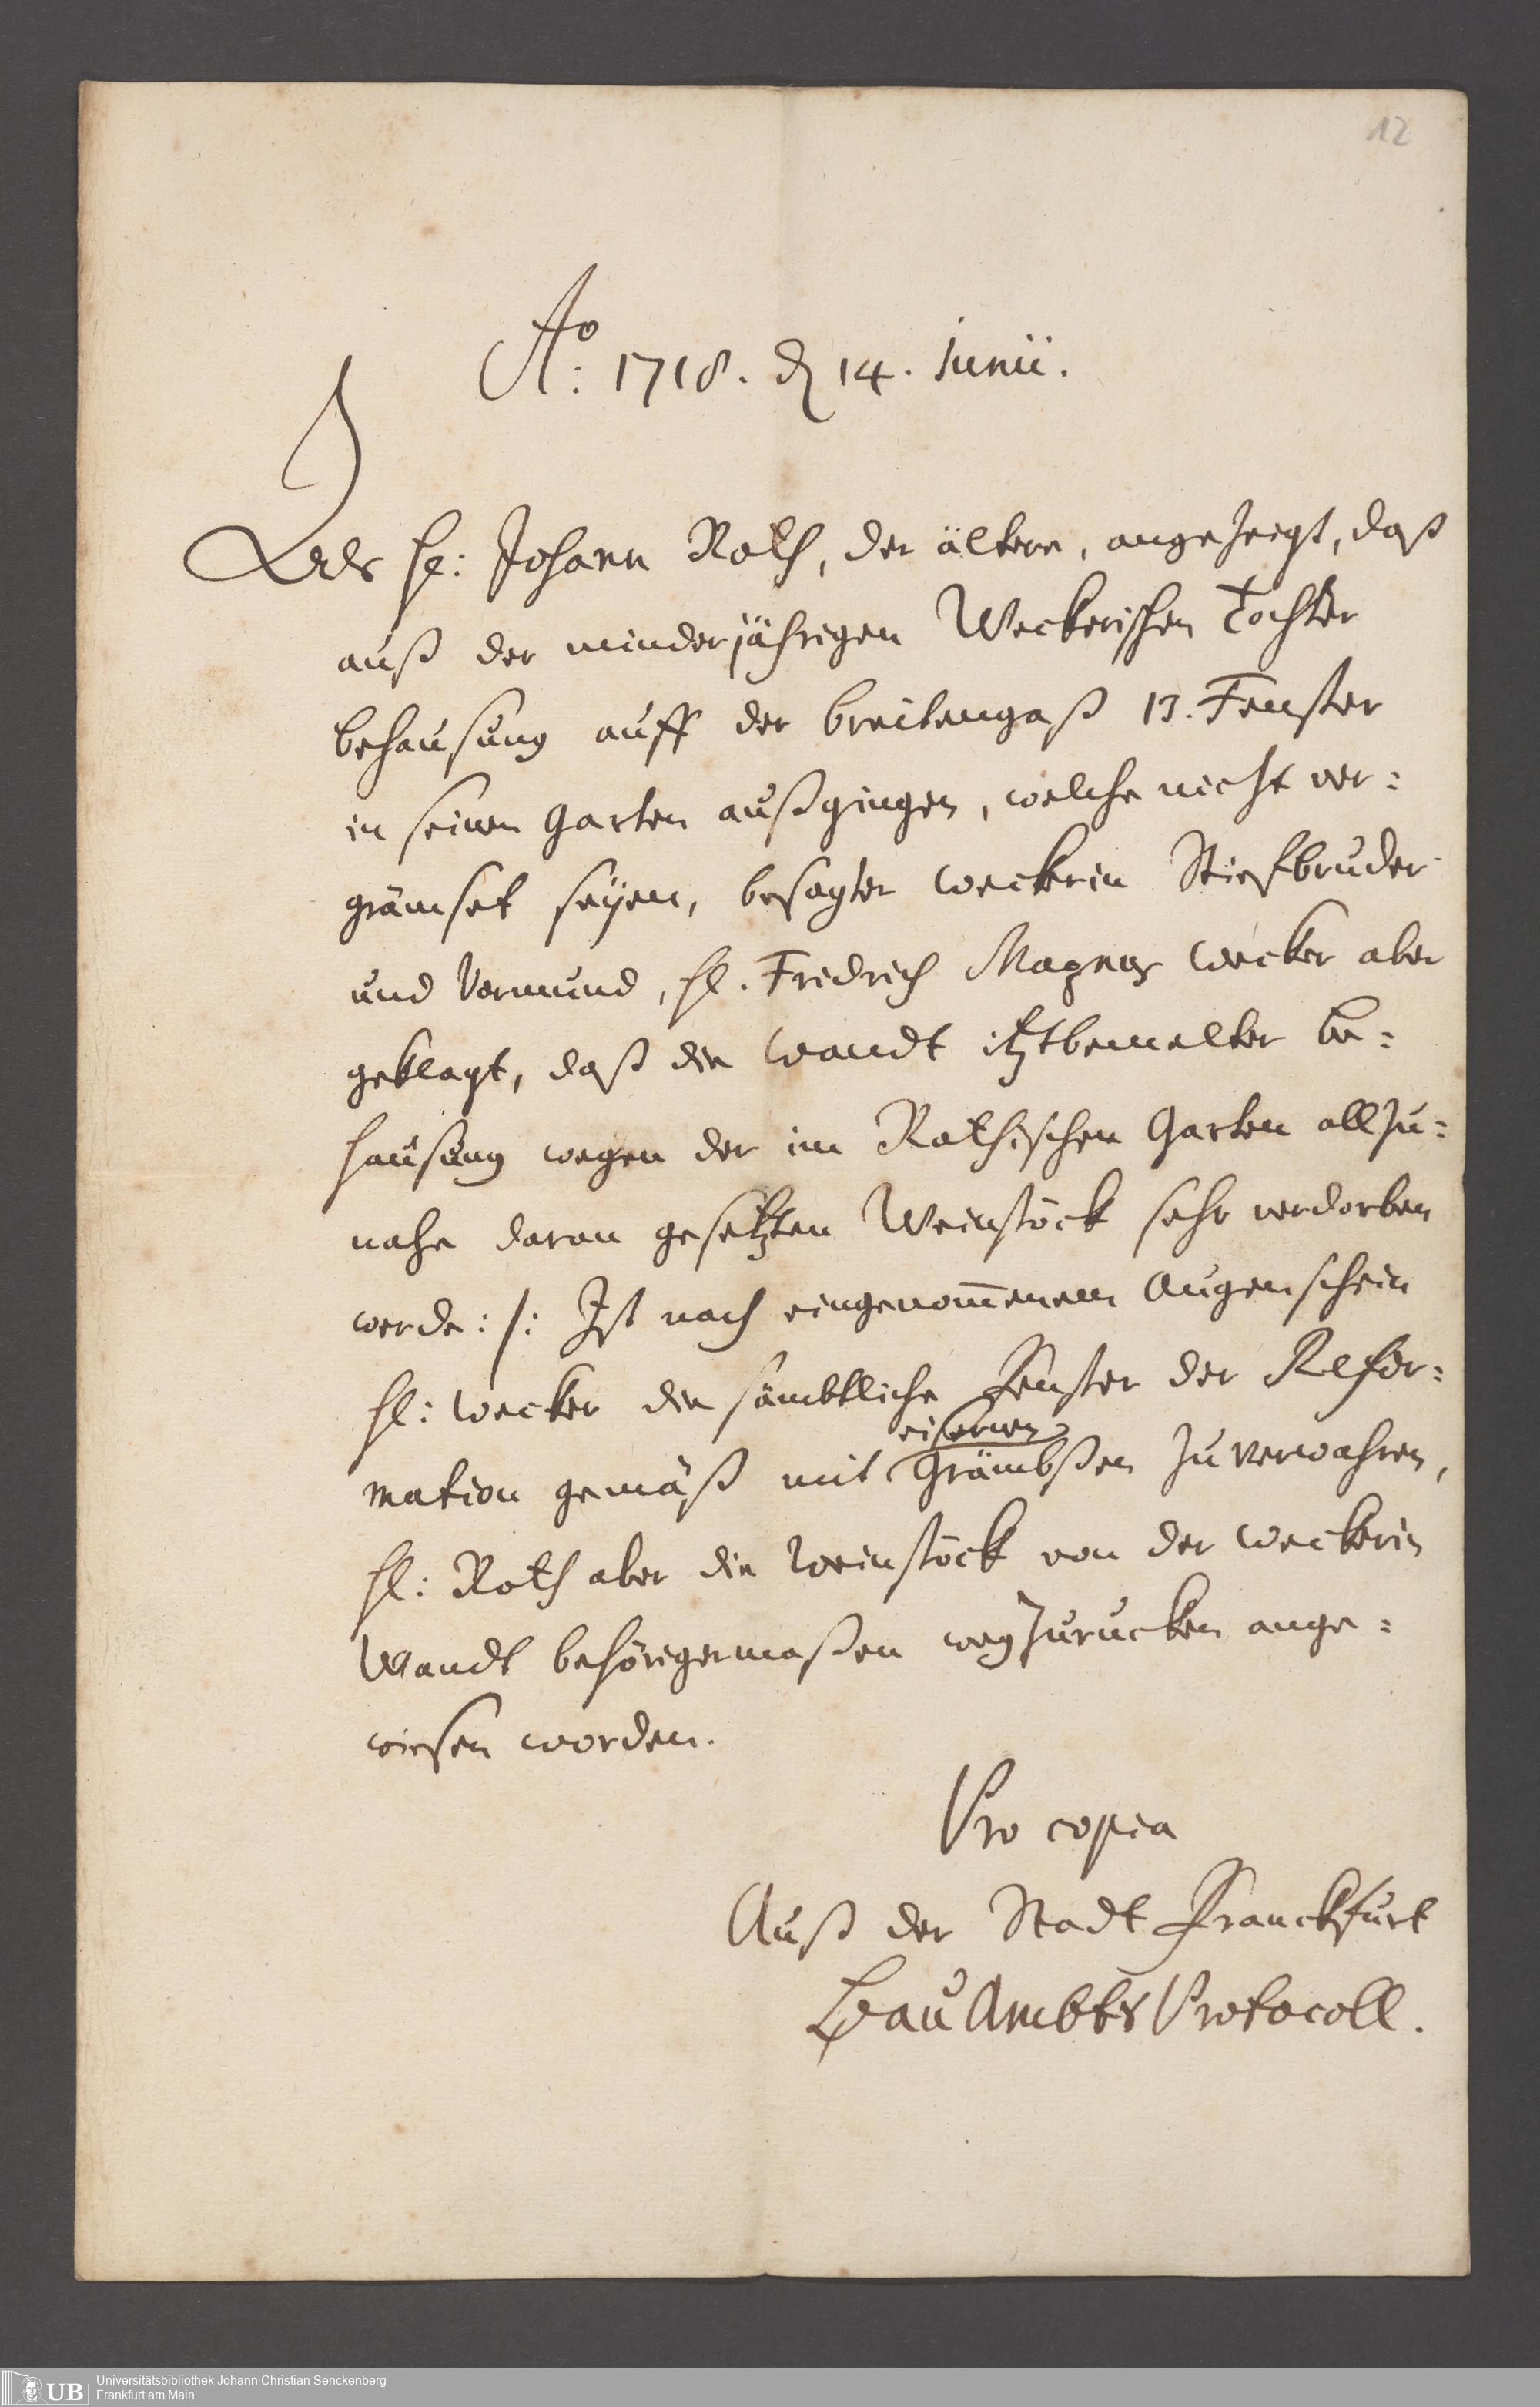 12
Aº: 1718. d 14. Junii.
Als H: Johann Roth, der ältere, angezeigt, daß
auß der minderjährigen Weckerischen Tochter
behausung auff der breitengaß 13. Fenster
in seinen Garten außgingen, welche nicht ver=
grämset seyen, besagter Weckerin Stiefbruder
und Vormund, H. Fridrich Magnus Wecker aber
geklagt, daß die Wandt itztbemelter be=
hausung wegen der im Rothischen Garten allzu=
nahe daran gesetzten Weinstöck sehr verdorben
werde: /: Ist nach eingenom̅enem Augenschein
H: Wecker die sämbtliche Fenster der Refor=
eisernen
mation gemäß mit Grämbßen zu verwahren,
H: Roth aber die Weinstöck von der Weckerin
Wandt behörigermaßen wegzurucken ange=
wiesen worden.
Pro copia
Auß der Stadt Franckfurt
Bau Ambts Protocoll.
UB
Universitätsbibliothek Johann Christian Senckenberg
Frankfurt am Main